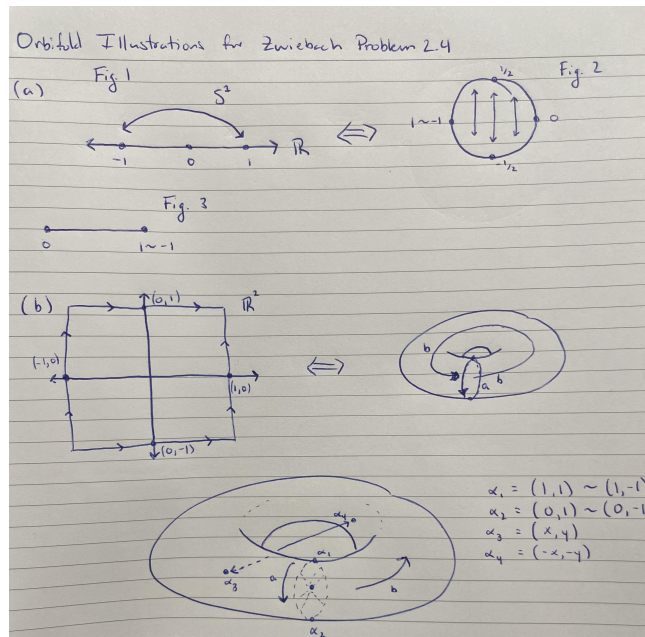 Orbifold Illustrations for Zwiebach Problem 2.4
(a) Fig. 1 Fig. 2
S¹
-1 0 1 ℝ ⟺ 1~-1 1/2 0 -1/2
Fig. 3
0 1~-1
(b) (0,1) ℝ²
(-1,0) (1,0) ⟺ b a b
(0,-1)
α₁ = (1,1) ~ (1,-1
α₂ = (0,1) ~ (0,-1
α₃ = (x,y)
α₄ = (-x,-y)
α₄
α₁
α₃ a b
α₂